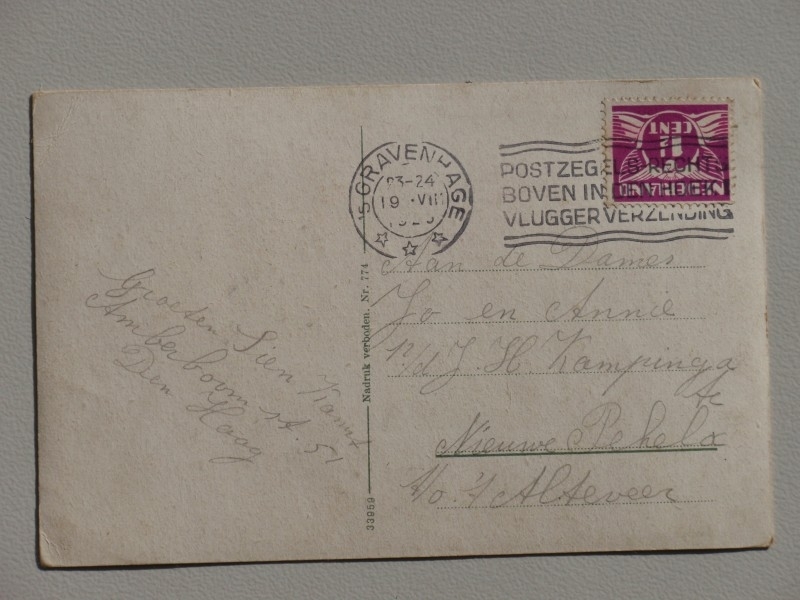 'S GRAVENHAGE
23-24
19 VIII
POSTZEGELS RECHTS
BOVEN IN DEN HOEK
VLUGGER VERZENDING
1½
CENT
NEDERLAND
Aan de Dames
Jo en Annie
p/d J. H. Kampinga
te
Nieuwe Pekela
No. Alteveer
Groeten Sien
Amberboom st. 51
Den Haag
Nadruk verboden. Nr. 774
33959